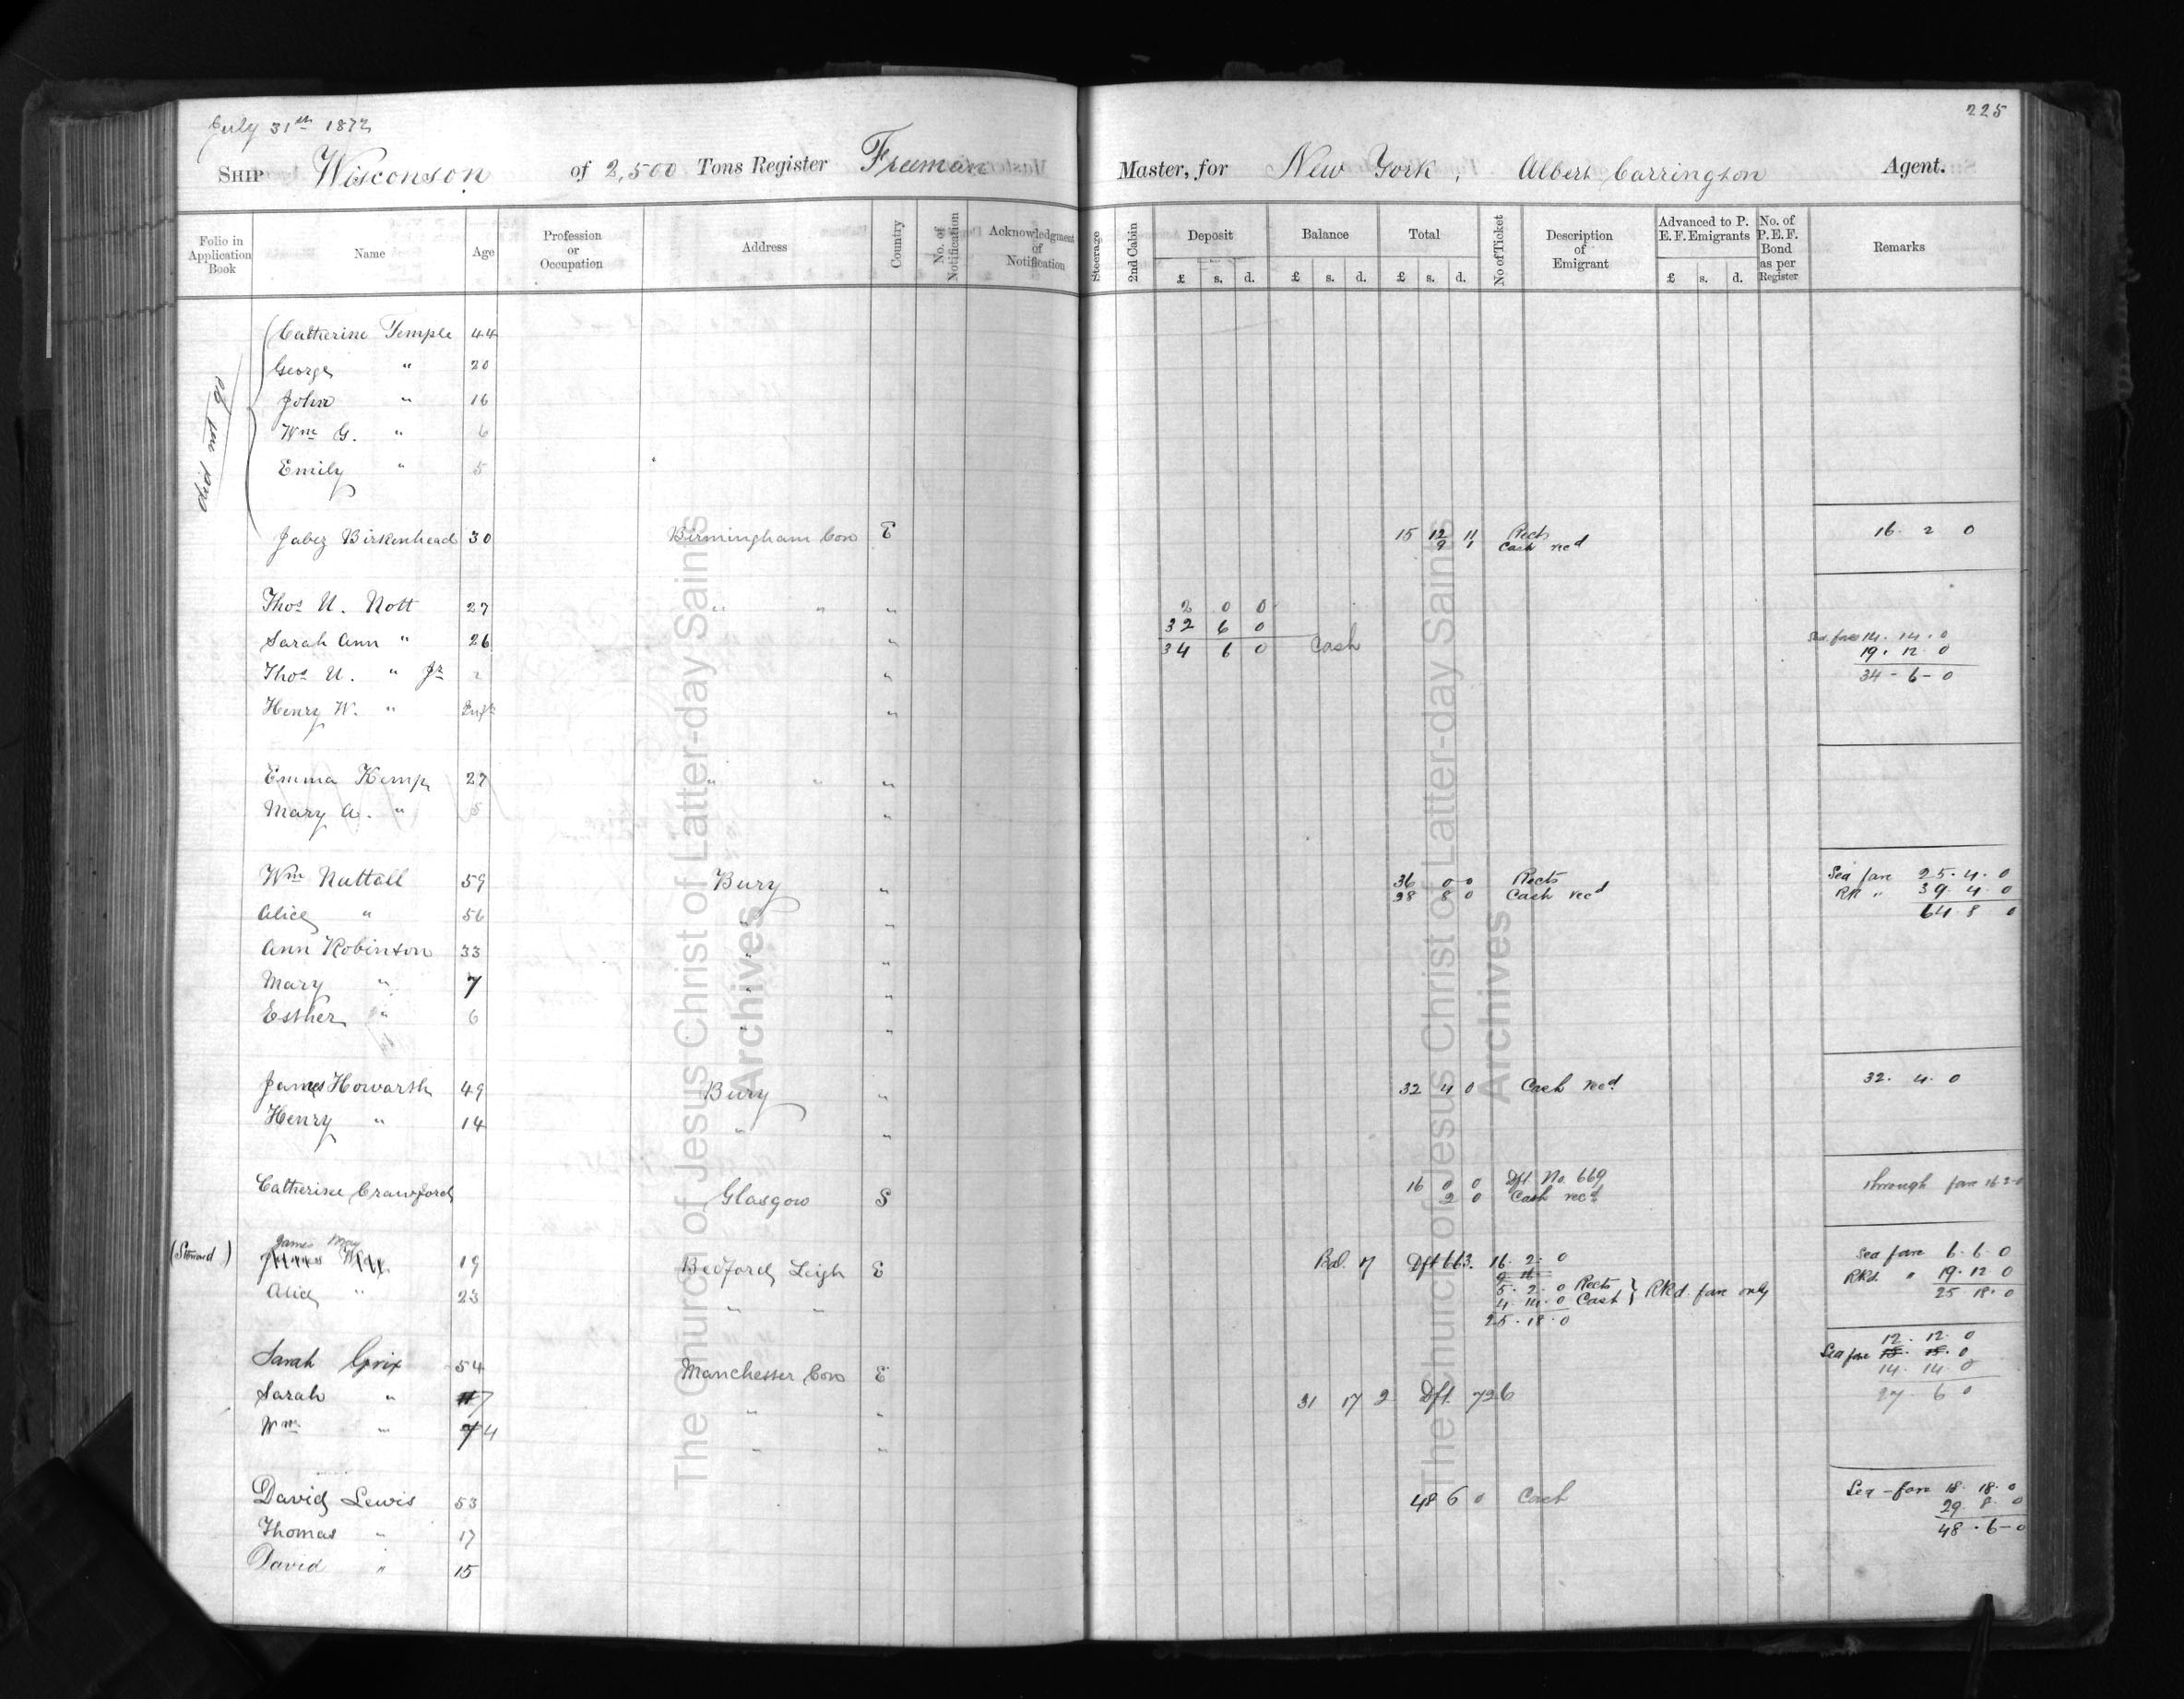 225
July 31st 1872
SHIP Wisconson of 2,500 Tons Register Freeman Master, for New York, Albert Carrington Agent.
Folio in Application Book Name Age Profession or Occupation Address Country No. of Notification Acknowledgment of Notification Steerage 2nd Cabin Deposit Balance Total No of Ticket Description of Emigrant Advanced to P. E. F. Emigrants No. of P. E. F. Bond as per Register Remarks
£ s. d. £ s. d. £ s. d. £ s. d.
did not go
Catherine Temple 44
George " 20
John " 16
Wm G. " 6
Emily " 5
Jabez Birkenhead 30 Birmingham Con E 15 12 11 Rects 16 2 0
9 1 Cash recd
Thos U. Nott 27 " " " 2 0 0
32 6 0
Sarah Ann " 26 " 34 6 0 Cash Sea fare 14. 14. 0
19. 12 0
Thos U. " Jr " 34 - 6 - 0
Henry W. " Inft "
Emma Kemp 27 " " "
Mary A. " 5 "
Wm Nuttall 59 Bury " 36 0 0 Rects Sea fare 25. 4. 0
28 8 0 Cash recd RR " 39. 4. 0
Alice " 56 " " 64 8 0
Ann Robinson 33 " "
Mary " 7 " "
Esther " 6 " "
James Howarth 49 Bury " 32 4 0 Cash recd 32. 4. 0
Henry " 14 " "
Catherine Crawford Glasgow S 16 0 0 Dft No. 669 through fare 16 2 0
2 0 Cash recd
James May
19 Bedford Leigh E Bal. 17 Dft 663. 16. 2. 0 Sea fare 6. 6. 0
Alice " 23 " " 5. 2. 0 Rects RRd. " 19. 12 0
4. 14. 0 Cash } RRd. fare only 25 18. 0
25. 18. 0
Sarah Grix 54 Manchester Con E 12. 12. 0
Sea fare
14. 14. 0
Sarah " 7 " " 31 17 2 Dft. 726 27 6 0
Wm " 4 " "
David Lewis 53 48 6 0 Cash Sea-fare 18. 18. 0
29. 8. 0
Thomas " 17 48. 6 - 0
David " 15
The Church of Jesus Christ of Latter-day Saints
Archives
The Church of Jesus Christ of Latter-day Saints
Archives